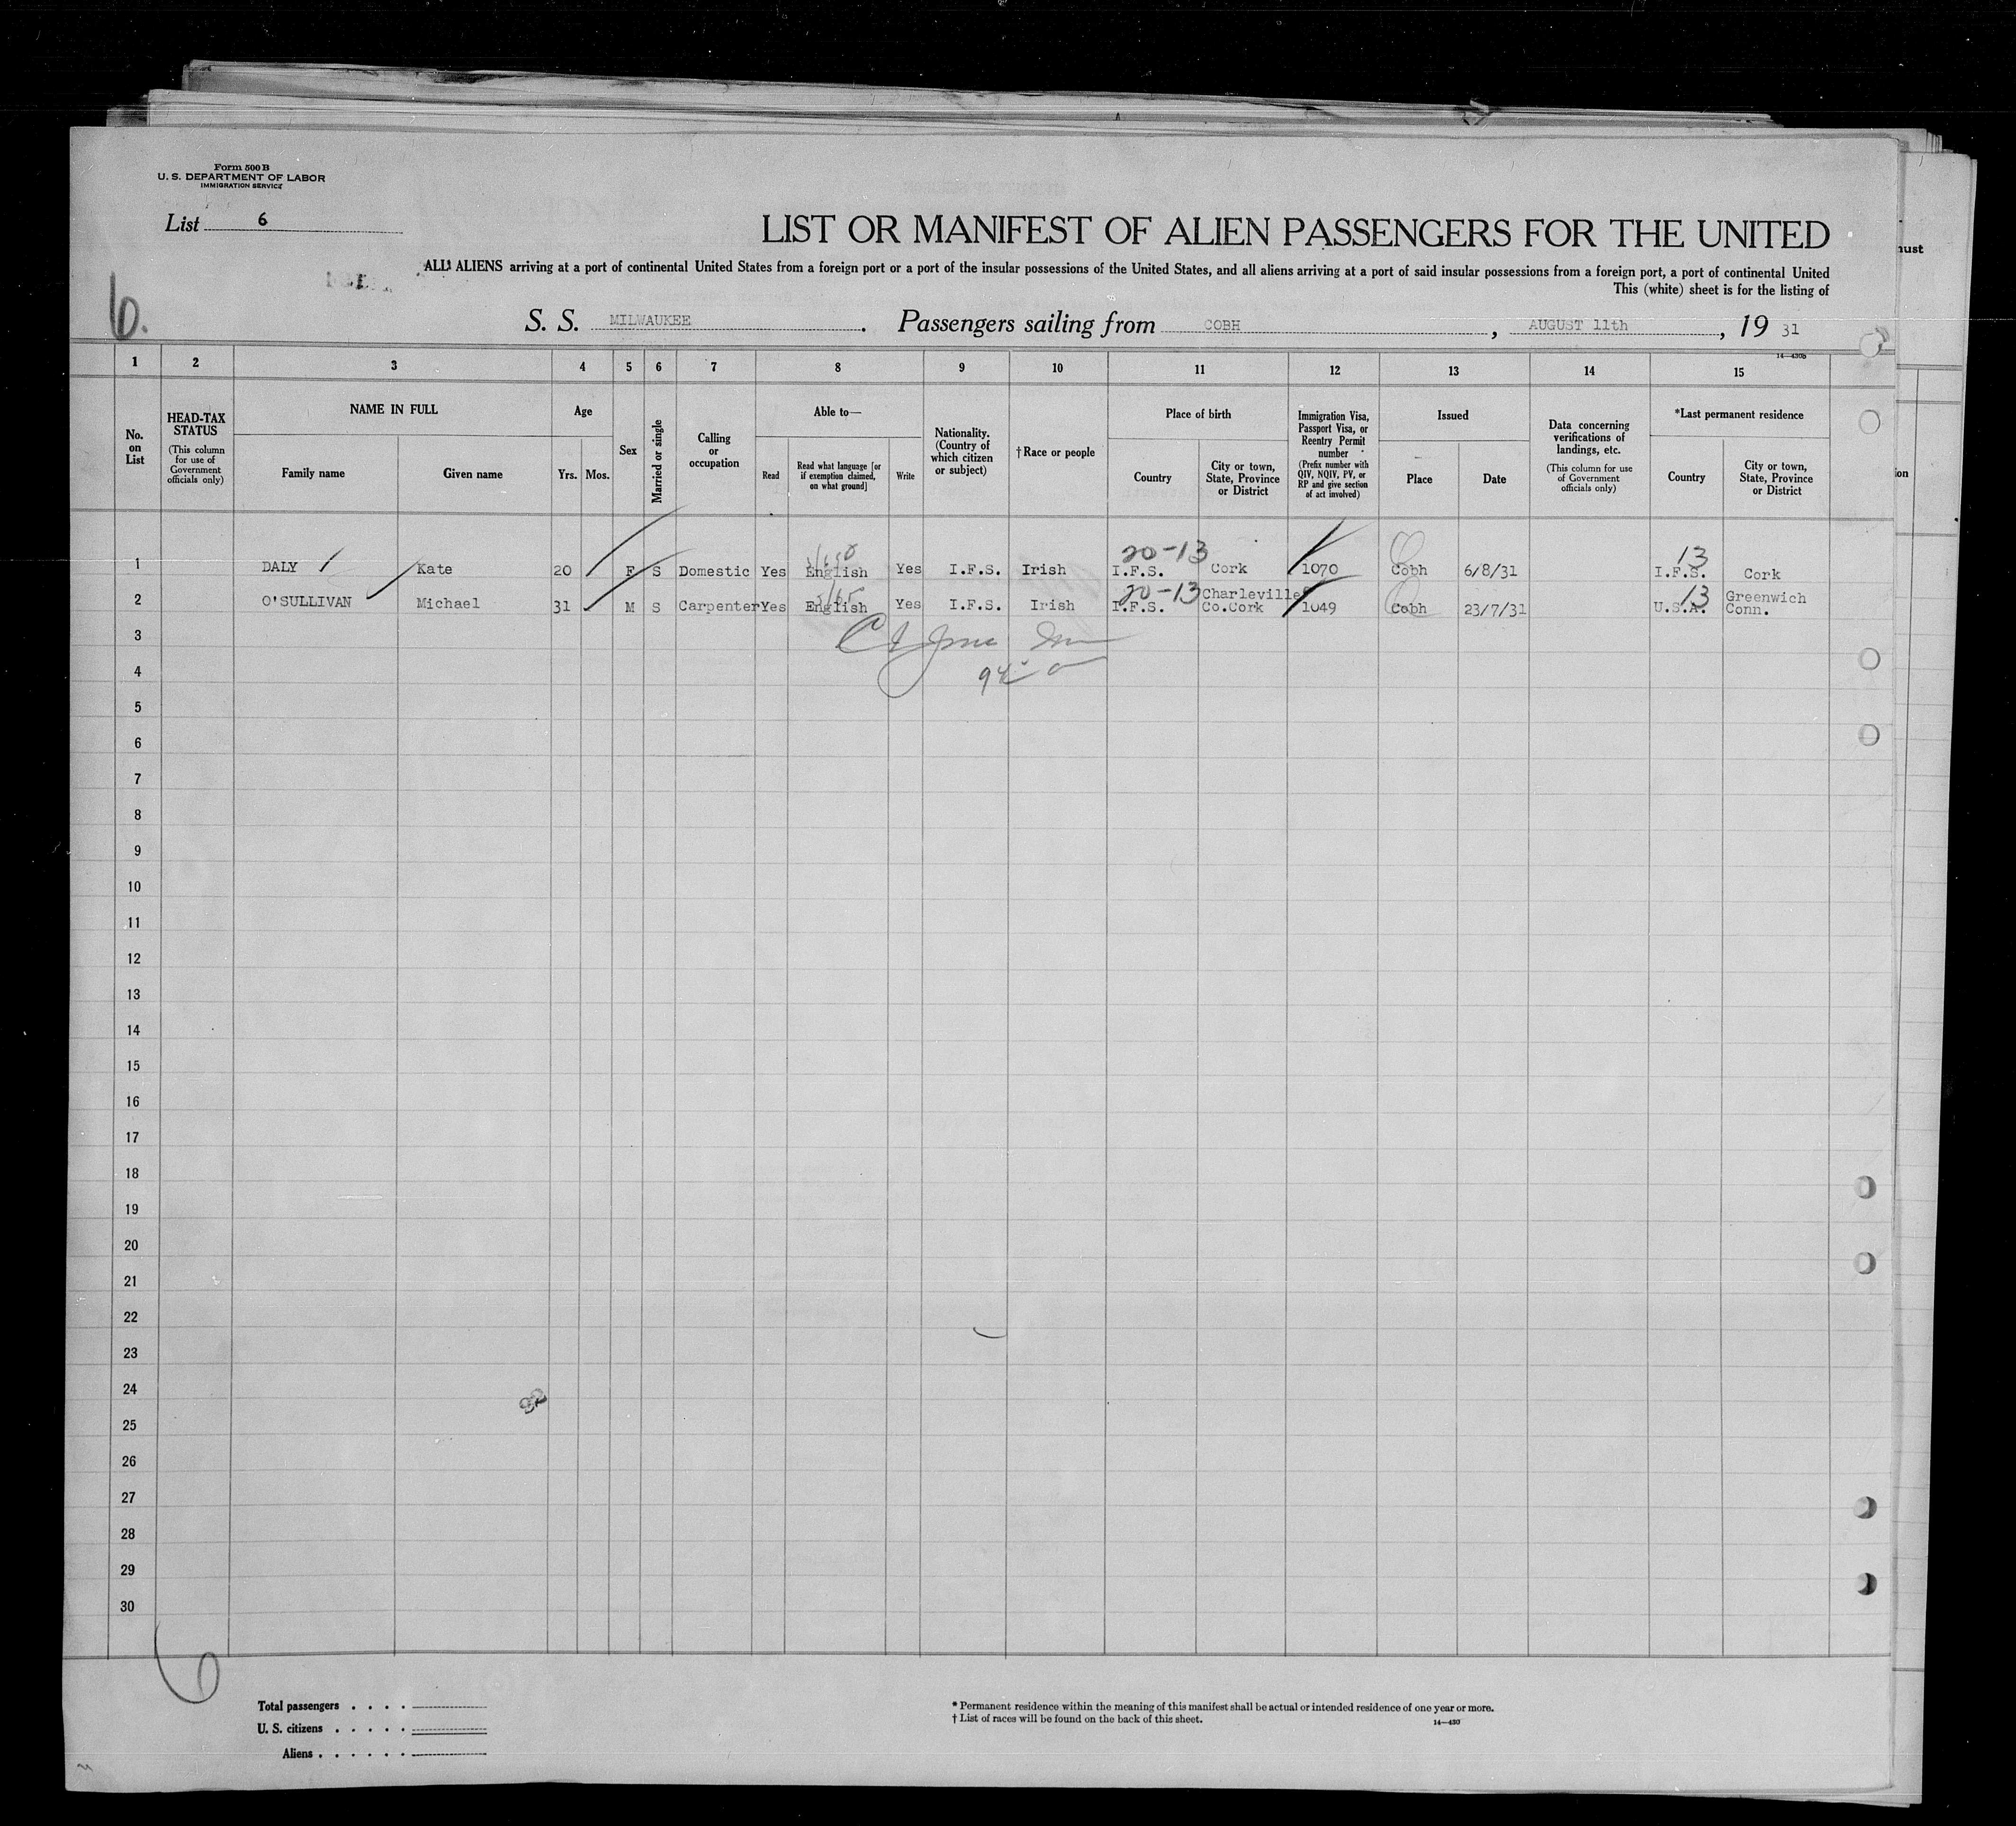 Form 500 B
U. S. DEPARTMENT OF LABOR
IMMIGRATION SERVICE
List 6
LIST OR MANIFEST OF ALIEN PASSENGERS FOR THE UNITED
ALL ALIENS arriving at a port of continental United States from a foreign port or a port of the insular possessions of the United States, and all aliens arriving at a port of said insular possessions from a foreign port, a port of continental United
This (white) sheet is for the listing of
6.
S. S. MILWAUKEE. Passengers sailing from COBH, AUGUST 11th, 19 31
14—430b
1 2 3 4 5 6 7 8 9 10 11 12 13 14 15
No. on List
HEAD-TAX STATUS
(This column for use of Government officials only)
NAME IN FULL
Family name
Given name
Age
Yrs.
Mos.
Sex
Married or single
Calling or occupation
Able to—
Read
Read what language [or if exemption claimed, on what ground]
Write
Nationality. (Country of which citizen or subject)
† Race or people
Place of birth
Country
City or town, State, Province or District
Immigration Visa, Passport Visa, or Reentry Permit number
(Prefix number with QIV, NQIV, PV, or RP and give section of act involved)
Issued
Place
Date
Data concerning verifications of landings, etc.
(This column for use of Government officials only)
*Last permanent residence
Country
City or town, State, Province or District
20-13 13
1 DALY Kate 20 F S Domestic Yes English Yes I.F.S. Irish I.F.S. Cork 1070 Cobh 6/8/31 I.F.S. Cork
20-13 13
2 O'SULLIVAN Michael 31 M S Carpenter Yes English Yes I.F.S. Irish I.F.S. Charleville Co.Cork 1049 Cobh 23/7/31 U.S.A. Greenwich Conn.
3
4
5
6
7
8
9
10
11
12
13
14
15
16
17
18
19
20
21
22
23
24
25
26
27
28
29
30
6
Total passengers . . . .
U. S. citizens . . . . .
Aliens . . . . . .
* Permanent residence within the meaning of this manifest shall be actual or intended residence of one year or more.
† List of races will be found on the back of this sheet.
14—430